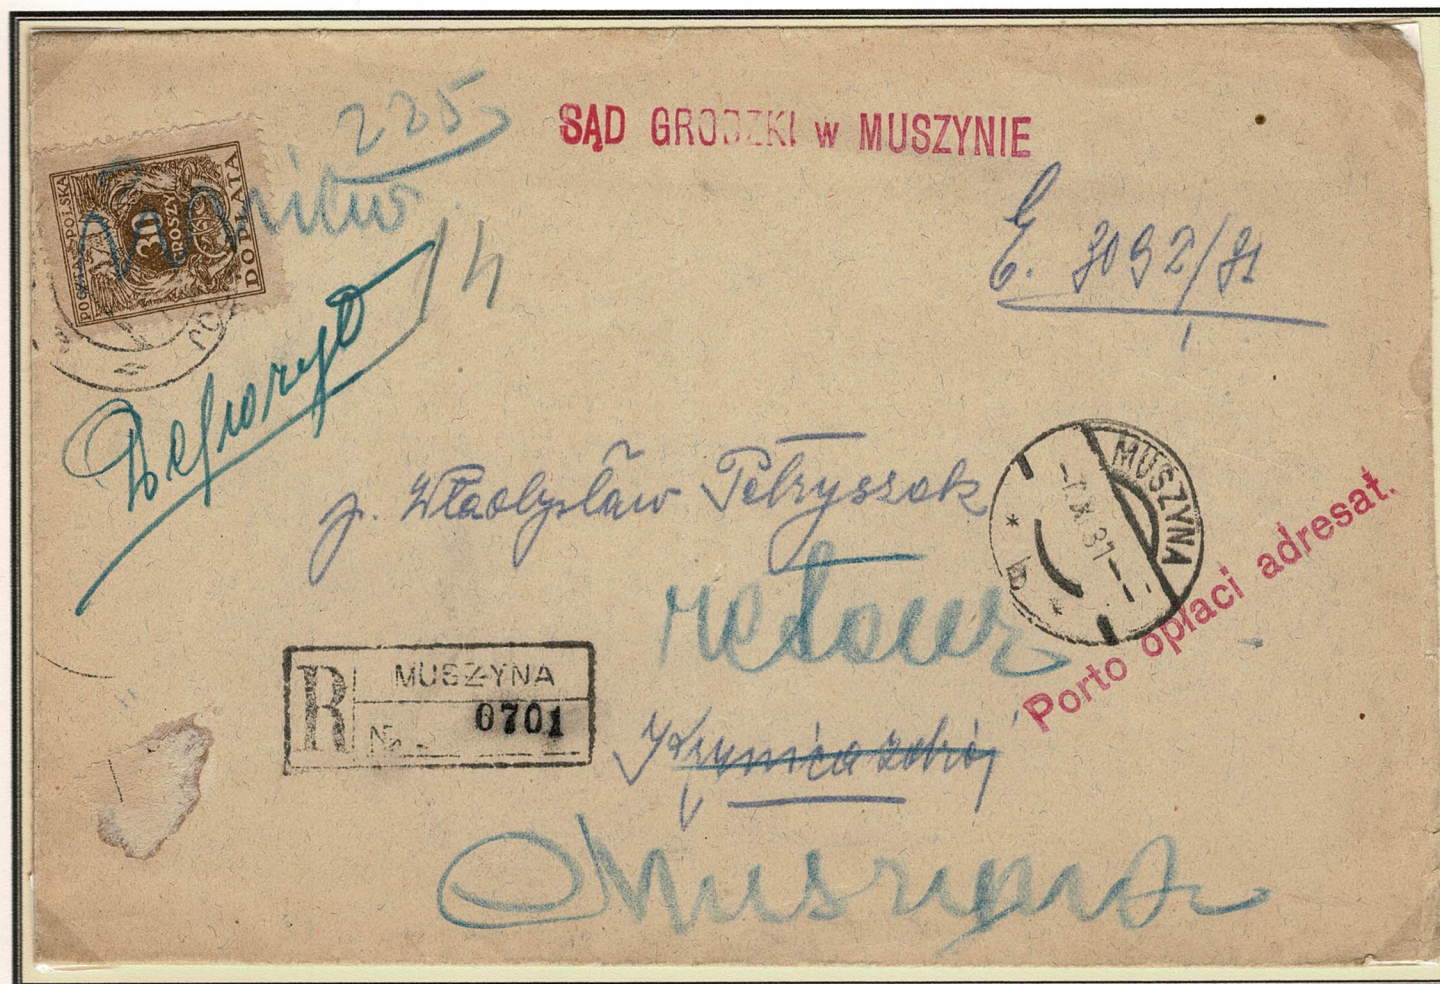 SĄD GRODZKI w MUSZYNIE
225
POCZTA POLSKA
30
GROSZY
DOPŁATA
E. 3092/31
14
p. Władysław Petryszak
MUSZYNA
-7.XI.31
* b *
retour
Porto opłaci adresat.
R
MUSZYNA
No 0701
Krynica zdrój
Muszyna